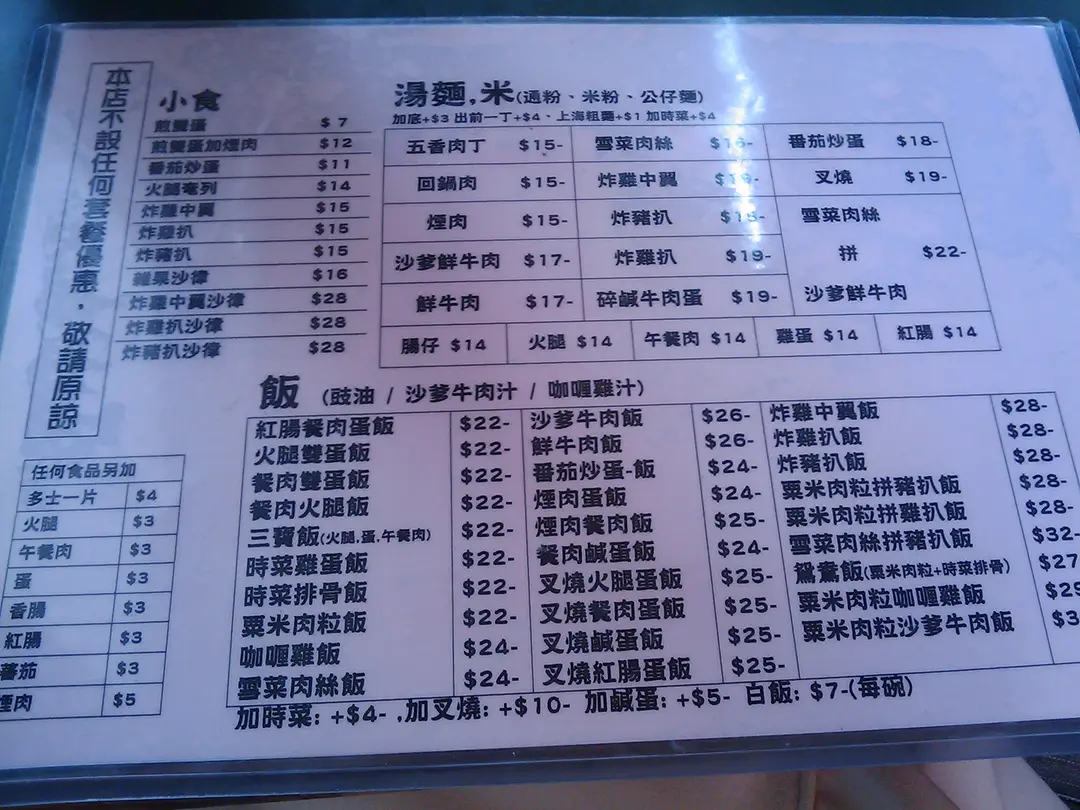 本店不設任何套餐優惠，敬請原諒
小食
煎雙蛋 $7
煎雙蛋加煙肉 $12
番茄炒蛋 $11
火腿奄列 $14
炸雞中翼 $15
炸雞扒 $15
炸豬扒 $15
雜果沙律 $16
炸雞中翼沙律 $28
炸雞扒沙律 $28
炸豬扒沙律 $28
湯麵,米(通粉、米粉、公仔麵)
加底+$3 出前一丁+$4、上海粗麵+$1 加時菜+$4
五香肉丁 $15-
回鍋肉 $15-
煙肉 $15-
沙爹鮮牛肉 $17-
鮮牛肉 $17-
雪菜肉絲
炸雞中翼
炸豬扒
炸雞扒 $19-
碎鹹牛肉蛋 $19-
番茄炒蛋 $18-
叉燒 $19-
雪菜肉絲
拼 $22-
沙爹鮮牛肉
腸仔 $14 火腿 $14 午餐肉 $14 雞蛋 $14 紅腸 $14
飯 (豉油 / 沙爹牛肉汁 / 咖喱雞汁)
紅腸餐肉蛋飯 $22-
火腿雙蛋飯 $22-
餐肉雙蛋飯 $22-
餐肉火腿飯 $22-
三寶飯(火腿.蛋.午餐肉) $22-
時菜雞蛋飯 $22-
時菜排骨飯 $22-
粟米肉粒飯 $22-
咖喱雞飯 $24-
雪菜肉絲飯 $24-
沙爹牛肉飯 $26-
鮮牛肉飯 $26-
番茄炒蛋-飯 $24-
煙肉蛋飯 $24-
煙肉餐肉飯 $25-
餐肉鹹蛋飯 $24-
叉燒火腿蛋飯 $25-
叉燒餐肉蛋飯 $25-
叉燒鹹蛋飯 $25-
叉燒紅腸蛋飯 $25-
炸雞中翼飯 $28-
炸雞扒飯 $28-
炸豬扒飯 $28-
粟米肉粒拼豬扒飯 $28-
粟米肉粒拼雞扒飯 $28-
雪菜肉絲拼豬扒飯 $32-
鴛鴦飯(粟米肉粒+時菜排骨) $27
粟米肉粒咖喱雞飯
粟米肉粒沙爹牛肉飯
加時菜: +$4- ,加叉燒: +$10- 加鹹蛋: +$5- 白飯: $7-(每碗)
任何食品另加
多士一片 $4
火腿 $3
午餐肉 $3
蛋 $3
香腸 $3
紅腸 $3
蕃茄 $3
煙肉 $5